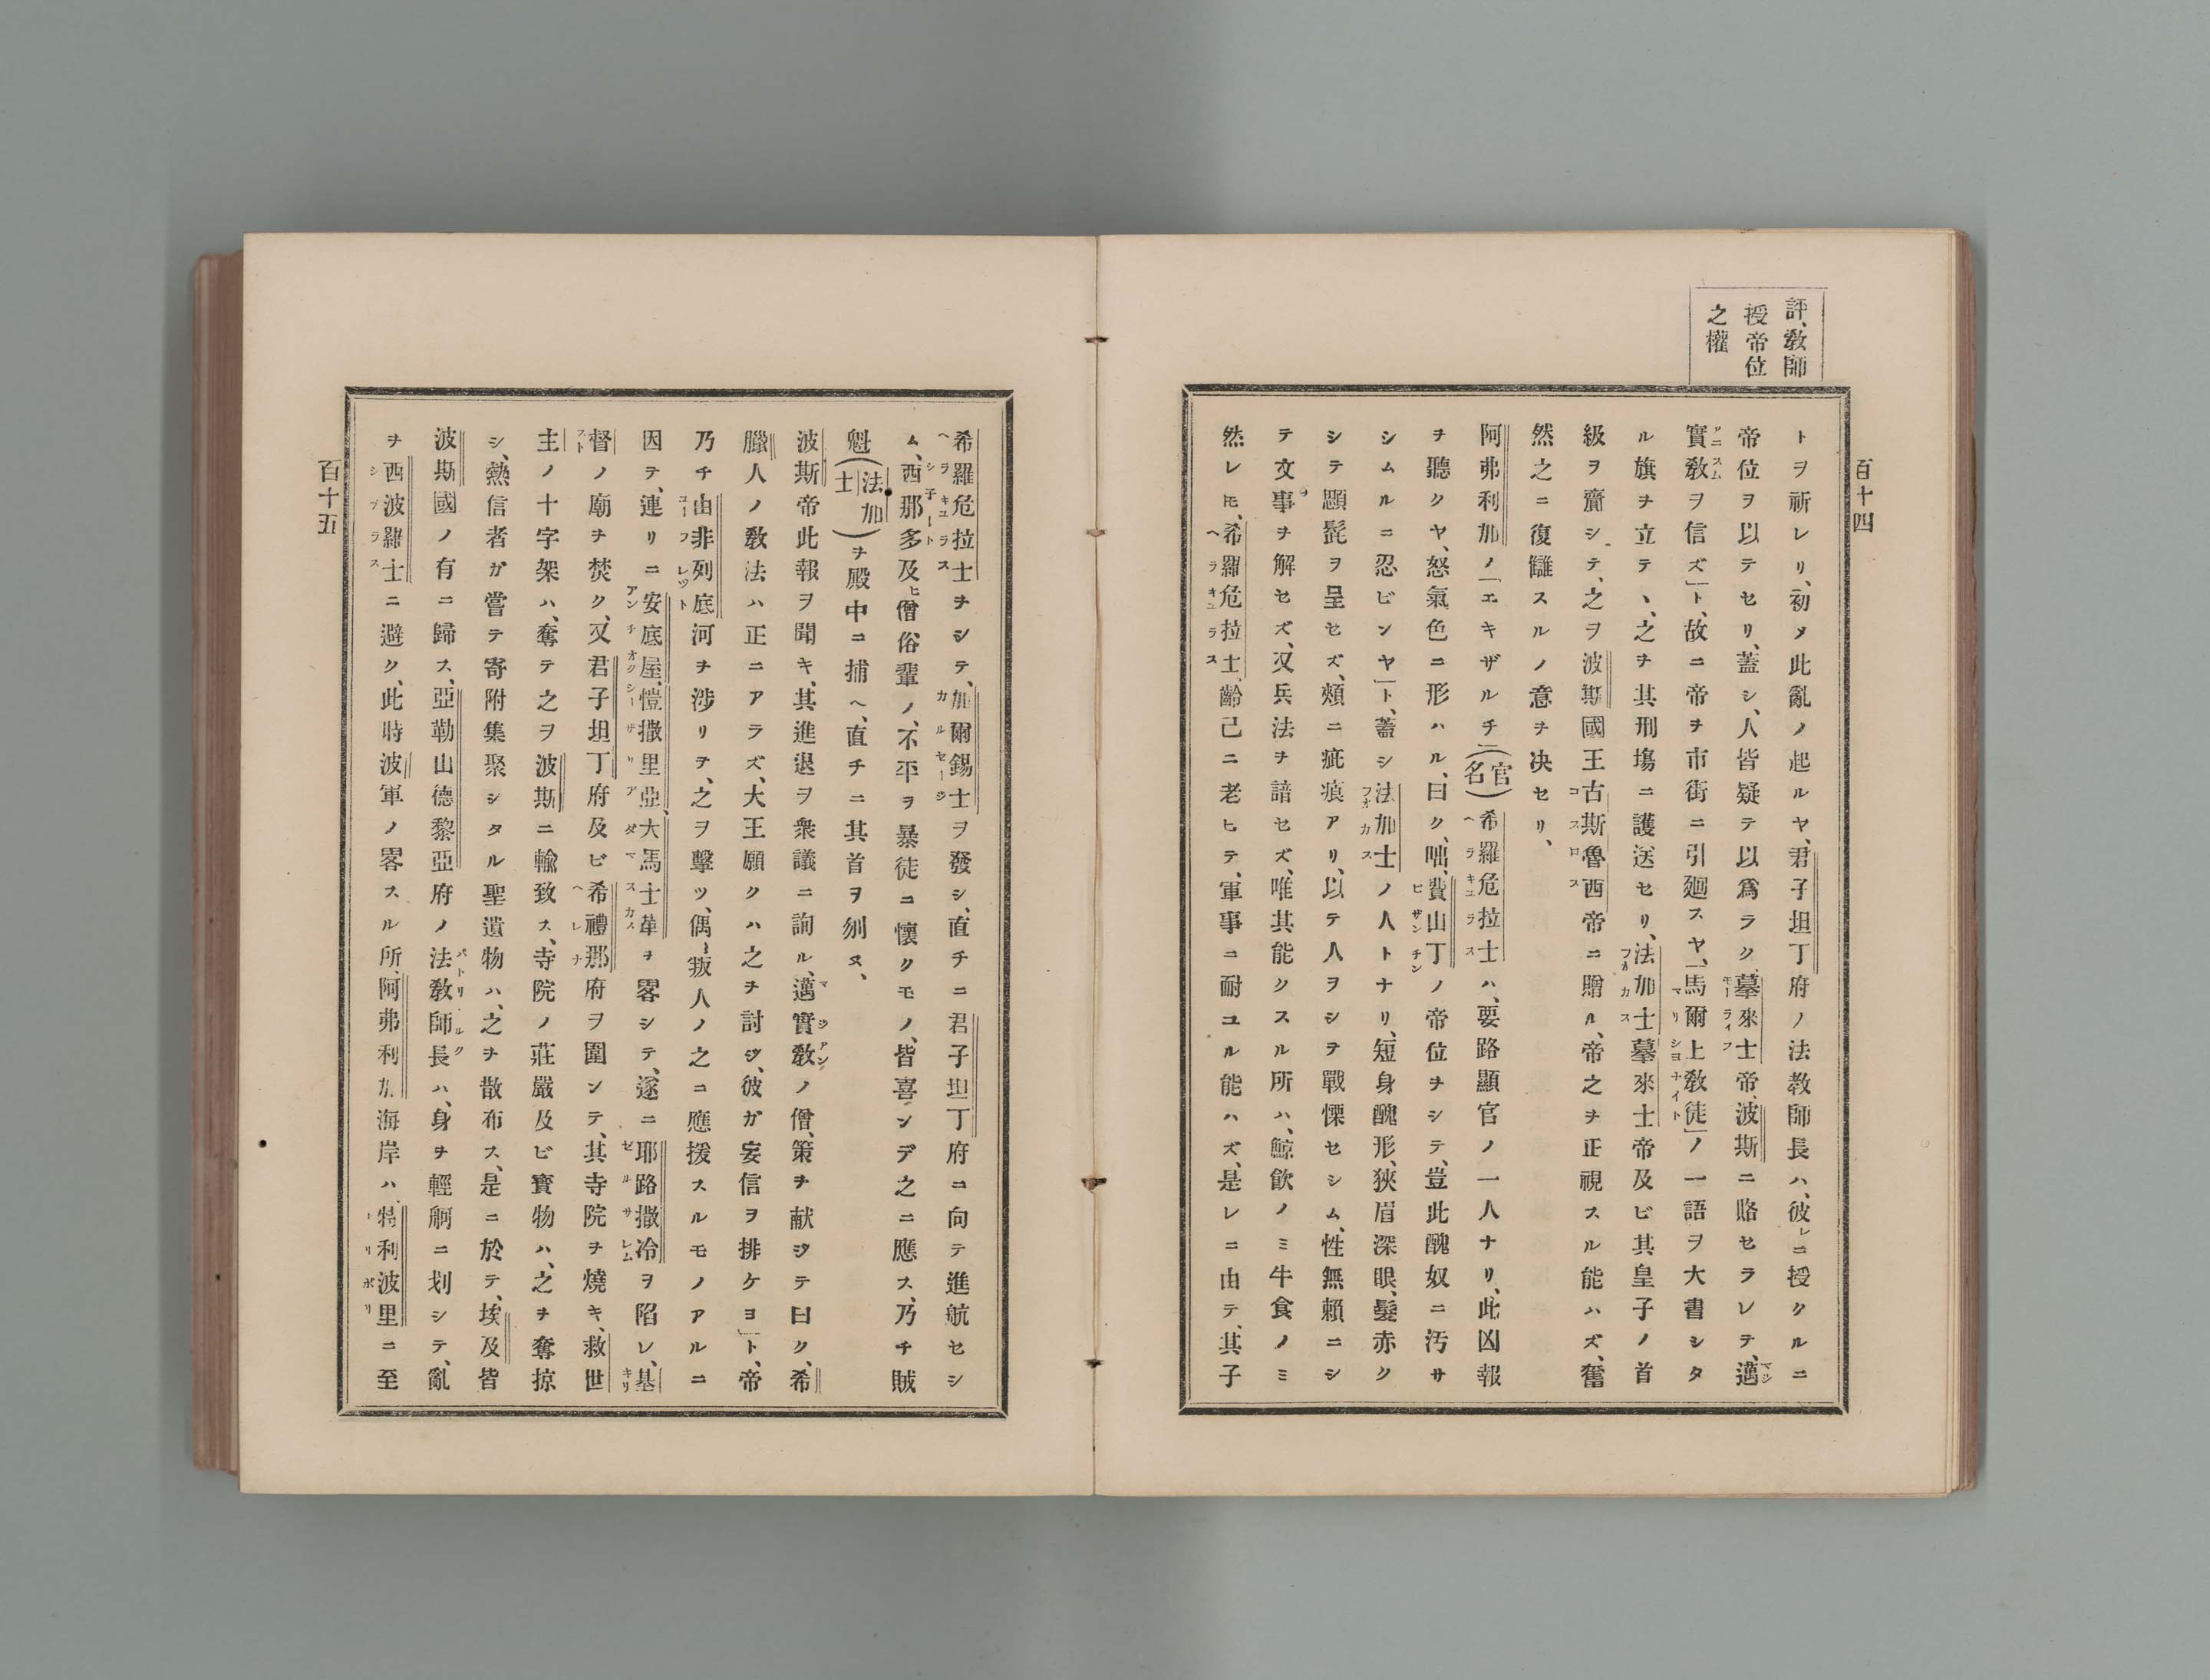 百十四
評、教師
授帝位
之權
トヲ祈レリ、初メ此亂ノ起ルヤ、君子坦丁府ノ法教師長ハ、彼レニ授クルニ
帝位ヲ以テセリ、蓋シ、人皆疑テ以爲ラク、墓來士帝、波斯ニ賂セラレテ、邁
實教ヲ信ズ」ト、故ニ帝ヲ市街ニ引廻スヤ、「馬爾上教徒」ノ一語ヲ大書シタ
ル旗ヲ立テヽ、之ヲ其刑塲ニ護送セリ、法加士墓來士帝及ビ其皇子ノ首
級ヲ齎シテ、之ヲ波斯國王古斯魯西帝ニ贈ル、帝之ヲ正視スル能ハズ、奮
然之ニ復讎スルノ意ヲ决セリ、
阿弗利加ノ「エキザルチ」(官名)希羅危拉士ハ、要路顯官ノ一人ナリ、此凶報
ヲ聽クヤ、怒氣色ニ形ハル、曰ク、咄、費山丁ノ帝位ヲシテ、豈此醜奴ニ汚サ
シムルニ忍ビンヤ」ト、蓋シ法加士ノ人トナリ、短身醜形、狹眉深眼、髮赤ク
シテ顋髭ヲ呈セズ、頰ニ疵痕アリ、以テ人ヲシテ戰慄セシム、性無賴ニシ
テ文事ヲ解セズ、又兵法ヲ諳セズ、唯其能クスル所ハ、鯨飮ノミ牛食ノミ
然レモ、希羅危拉士、齡已ニ老ヒテ、軍事ニ耐ユル能ハズ、是レニ由テ、其子
希羅危拉士ヲシテ、加爾錫士ヲ發シ、直チニ君子坦丁府ニ向テ進航セシ
ム、西那多及ヒ僧俗輩ノ、不平ヲ暴徒ニ懷クモノ、皆喜ンデ之ニ應ス、乃チ賊
魁(法加士)ヲ殿中ニ捕ヘ、直チニ其首ヲ刎ヌ、
波斯帝此報ヲ聞キ、其進退ヲ衆議ニ詢ル、邁實教ノ僧、策ヲ献ジテ曰ク、希
臘人ノ教法ハ正ニアラズ、大王願クハ之ヲ討ジ、彼ガ妄信ヲ排ケヨ」ト、帝
乃チ由非列底河ヲ涉リヲ、之ヲ擊ツ、偶〻叛人ノ之ニ應援スルモノアルニ
因テ、連リニ安底屋、愷撒里亞、大馬士革ヲ畧シテ、遂ニ耶路撒冷ヲ陷レ、基
督ノ廟ヲ焚ク、又君子坦丁府及ビ希禮那府ヲ圍ンテ、其寺院ヲ燒キ、救世
主ノ十字架ハ、奪テ之ヲ波斯ニ輸致ス、寺院ノ莊嚴及ビ寳物ハ、之ヲ奪掠
シ、熱信者ガ嘗テ寄附集聚シタル聖遺物ハ、之ヲ散布ス、是ニ於テ、埃及皆
波斯國ノ有ニ歸ス、亞勒山德黎亞府ノ法教師長ハ、身ヲ輕舸ニ划シテ、亂
ヲ西波羅士ニ避ク、此時波軍ノ畧スル所、阿弗利加海岸ハ、特利波里ニ至
百十五